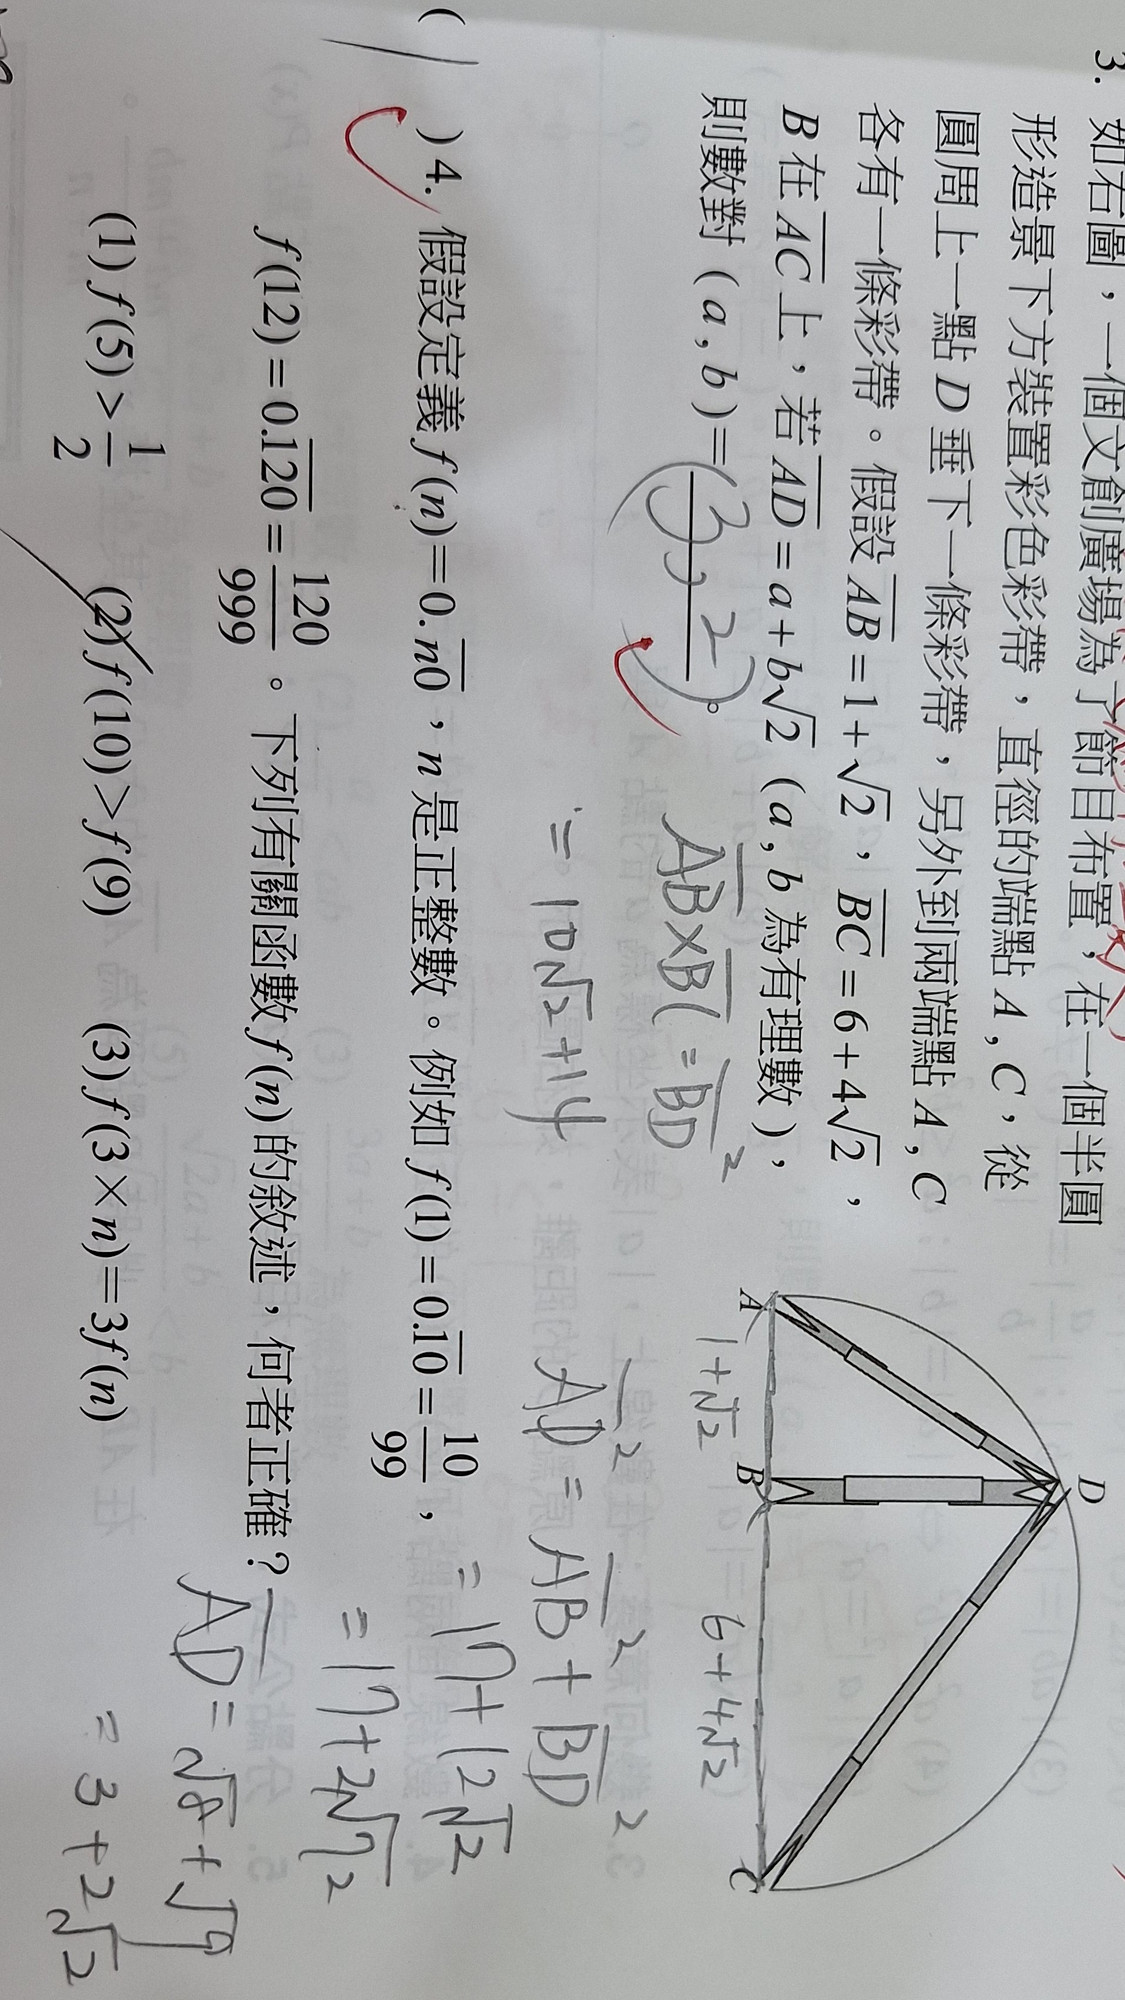 3. 如右圖，一個文創廣場為了節目布置，在一個半圓
形造景下方裝置彩色彩帶，直徑的端點 A , C，從
圓周上一點 D 垂下一條彩帶，另外到兩端點 A , C
各有一條彩帶。假設 \overline{AB} = 1+√2，\overline{BC} = 6+4√2，
B 在 \overline{AC} 上，若 \overline{AD} = a+b√2（a , b 為有理數），
則數對（a , b）= (3, 2)。
A
B
C
D
1+√2
6+4√2
\overline{AB}×\overline{BC} = \overline{BD}²
= 10√2+14
\overline{AD}² = \overline{AB}² + \overline{BD}²
= 17+12√2
= 17+2√72
\overline{AD} = √8+√9
= 3+2√2
( 1 ) 4. 假設定義 f(n) = 0.\overline{n0}，n 是正整數。例如 f(1) = 0.\overline{10} = 10/99，
f(12) = 0.\overline{120} = 120/999。下列有關函數 f(n) 的敘述，何者正確？
(1) f(5) > 1/2 (2) f(10) > f(9) (3) f(3×n) = 3f(n)